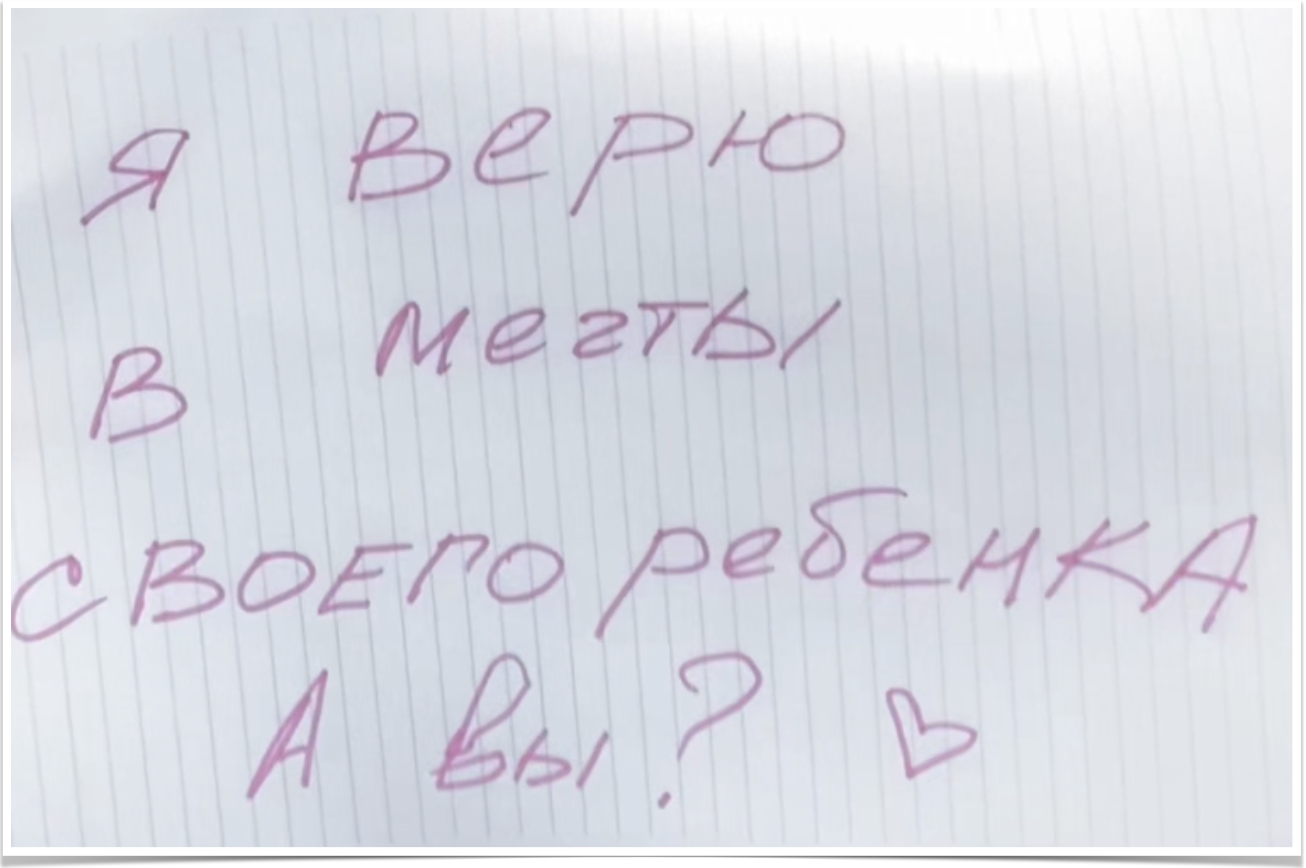 Я верю
в мечты
своего ребенка
А вы? ♡